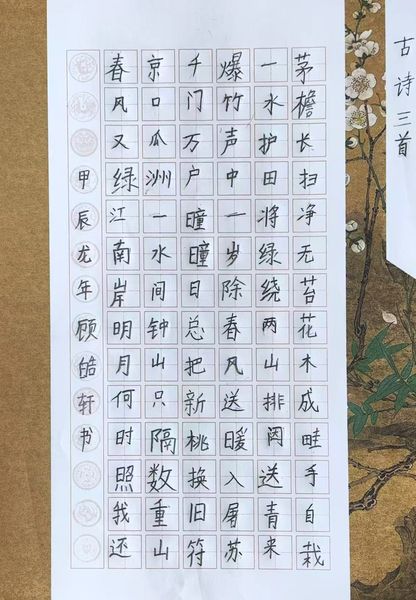 古诗三首
茅檐长扫净无苔花木成畦手自栽
一水护田将绿绕两山排闼送青来
爆竹声中一岁除春风送暖入屠苏
千门万户曈曈日总把新桃换旧符
京口瓜洲一水间钟山只隔数重山
春风又绿江南岸明月何时照我还
甲辰龙年顾皓轩书